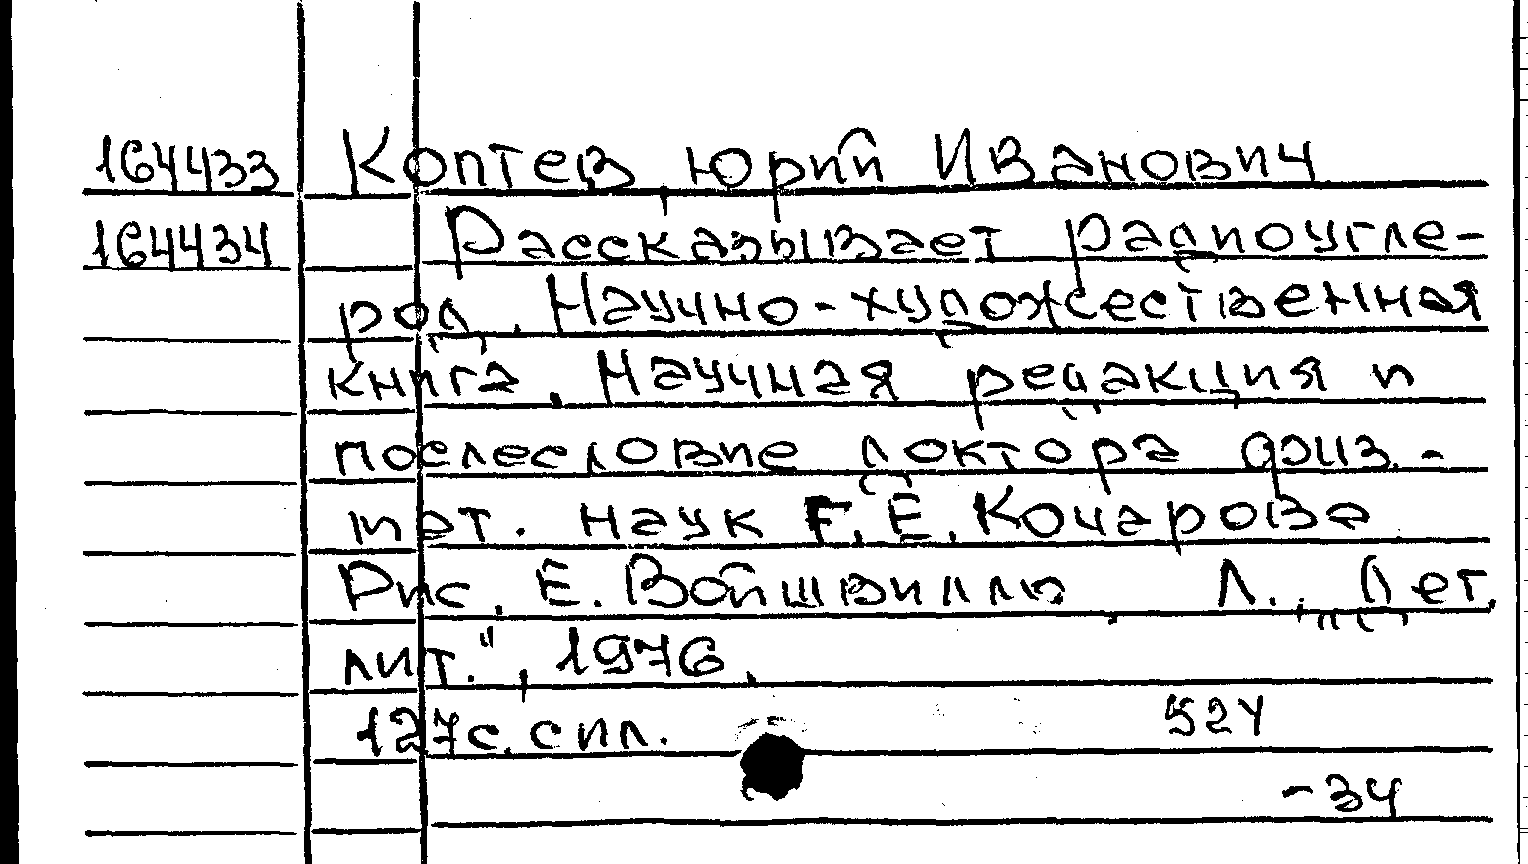 164433 Коптев, Юрий Иванович
164434 Рассказывает радиоугле-
род. Научно-художественная
книга. Научная редакция и
послесловие доктора физ.-
мат. наук Г.Е. Кочарова.
Рис. Е. Войшвилло. Л., "Дет.
лит.", 1976.
127с. с ил. 524
-34